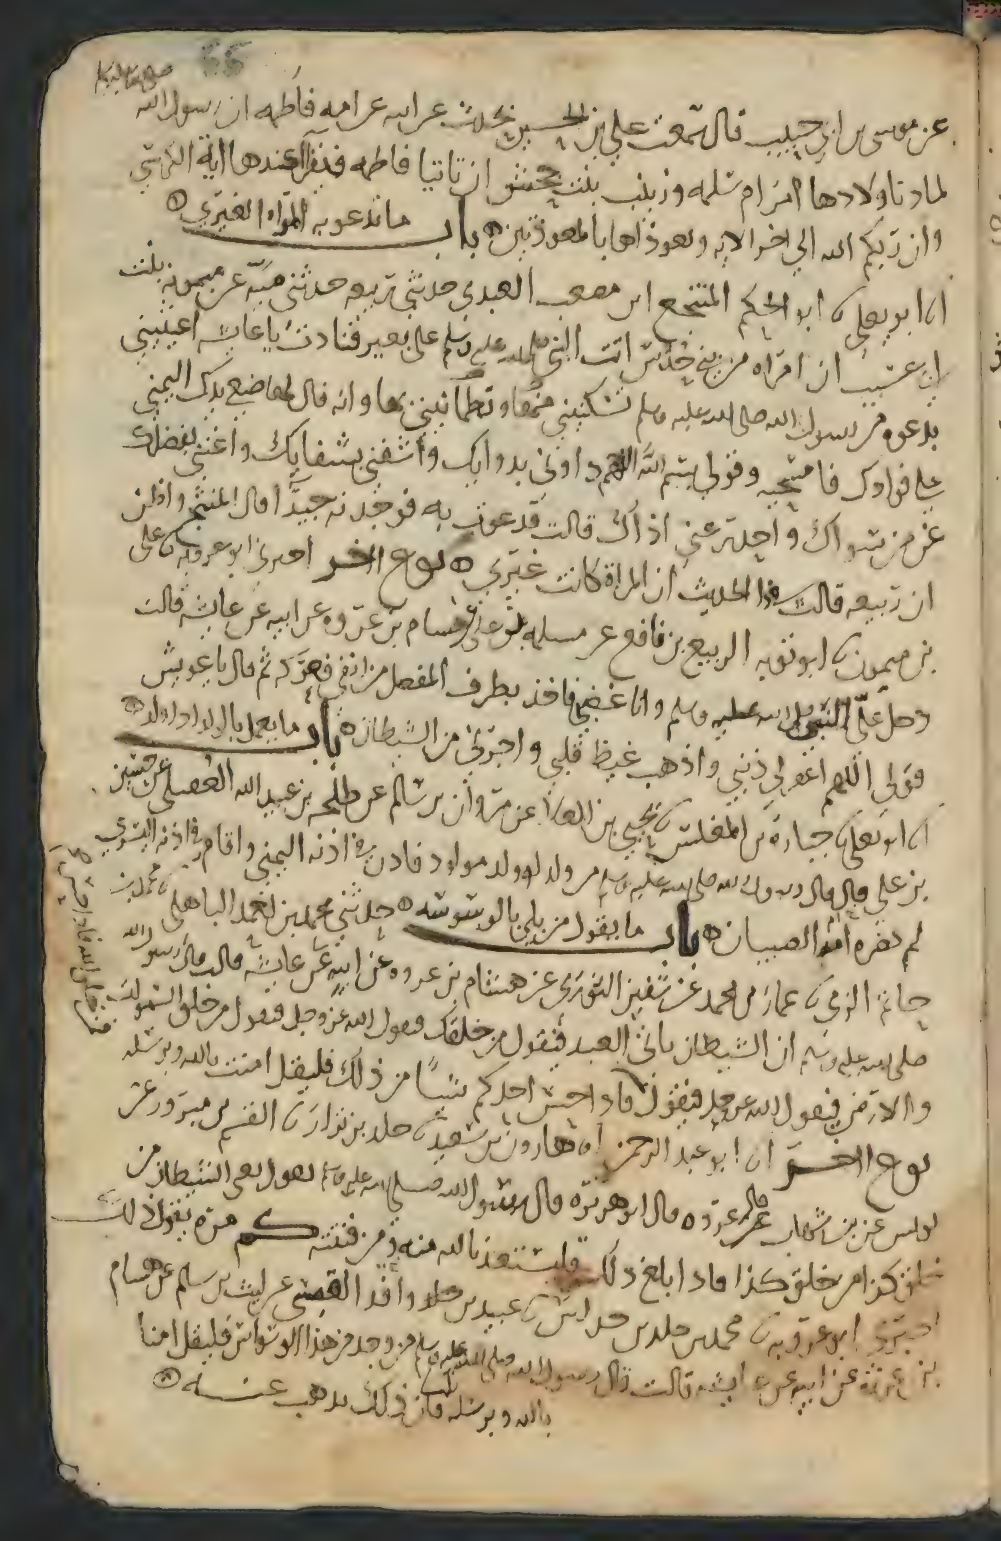 صلى الله عليه وسلم
عن موسى بن ابي حبيب قال سمعت علي بن الحسين يحدث عن ابيه عن امه فاطمه ان رسول الله
لما دنا ولادها امر ام سلمه وزينب بنت جحش ان تاتيا فاطمه فتقرآ عندها اية الكرسي
وان ربكم الله الى اخر الايه وتعوذاها بالمعوذتين باب ما تدعو به المراه الغيرى
انا ابو يعلى ابو الحكم المنتجع ابن مصعب العبدي حدثني ربيعه حدثني منيه عن ميمونه بنت
ابي عسيب ان امراه من بني جرش اتت النبي صلى الله عليه وسلم على بعير فنادت يا عايشه اغيثيني
بدعوه من رسول الله صلى الله عليه وسلم تسكنيني بها وتطمانيني بها وانه قال لها ضعي يدك اليمنى
على فوادك فامسحيه وقولي بسم الله اللهم داوني بدوايك واشفني بشفايك واغنني بفضلك
عن من سواك واحدر عني اذاك قالت فدعوت به فوجدته جيدا قال المنتجع واظن
ان ربيعه قالت في هذا الحديث ان المراة كانت غيرى نوع اخر اخبرني ابو عروبه علي
بن ميمون ابو توبه الربيع بن نافع عن مسلمه بن علي عن هشام بن عروه عن ابيه عن عايشه قالت
دخل علي النبي صلى الله عليه وسلم وانا غضبى فاخذ بطرف المفصل من انفي فعركه ثم قال يا عويش
قولي اللهم اغفر لي ذنبي واذهب غيظ قلبي واجرني من الشيطان باب ما يعمل بالولد اذا ولد
انا ابو يعلى جبارة بن المغلس يحيى بن العلا عن مروان بن سالم عن طلحه بن عبيد الله العقيلي عن حسين
بن علي قال قال رسول الله صلى الله عليه وسلم من ولد له ولد مولود فاذن في اذنه اليمنى واقام في اذنه اليسرى
لم تضره ام الصبيان باب ما يقول من بلي بالوسوسه حدثني محمد بن محمد الباهلي محمد بن
حاتم الزمي عمار بن محمد عن سفين الثوري عن هشام بن عروه عن ابيه عن عايشه قالت قال رسول الله
صلى الله عليه وسلم ان الشيطان ياتي العبد فيقول من خلقك فيقول الله عز وجل فيقول من خلق السموات
والارض فيقول الله عز وجل فيقول
فمن خلق الله فاذا احس
فاذا احس احدكم شيئا من ذلك فليقل امنت بالله وبرسله
نوع اخر انا ابو عبد الرحمن انا هارون بن سعيد خلد بن نزار القسم بن مبرور عن
يونس عن بن شهاب قال عروه قال ابو هريره قال رسول الله صلى الله عليه وسلم يقول ياتي الشيطان من
خلق كذا من خلق كذا فاذا بلغ ذلك فليستعذ بالله منه ومن فتنته
اخبرني ابو عروبه محمد بن خلد بن خداش عبيد بن واقد القيسي عن ليث بن سالم عن هشام
بن عروه عن ابيه عن عايشه قالت قال رسول الله صلى الله عليه وسلم من وجد من هذا الوسواس فليقل امنا
بالله وبرسله فان ذلك يذهب عنه